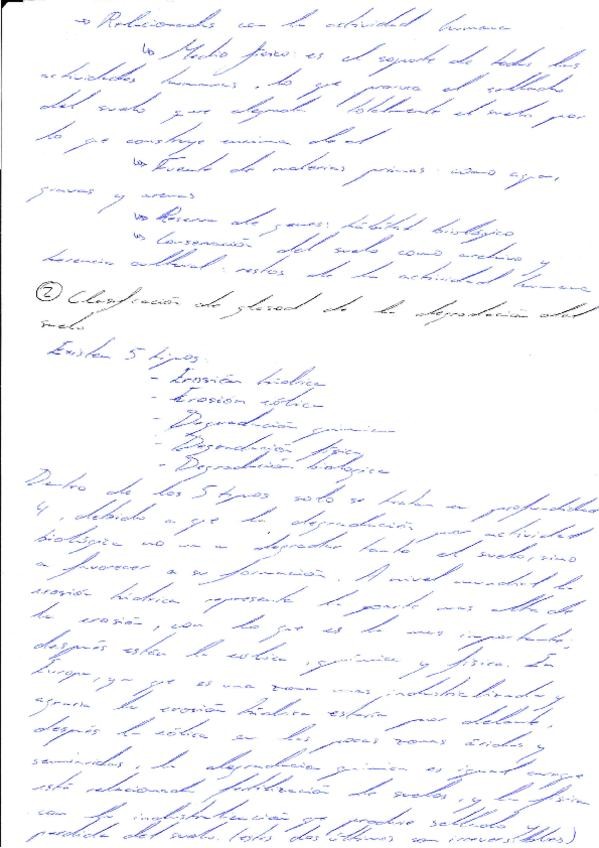 → Relacionados con la actividad humana
↳ Medio físico: es el soporte de todas las
actividades humanas, lo que provoca el sellado
del suelo que degrada totalmente el suelo por
lo que construye encima de él
↳ Fuente de materias primas: como agua,
gravas y arenas
↳ Reserva de genes: hábitat biológico
↳ Conservación del suelo como archivo y
herencia cultural: restos de la actividad humana
② Clasificación de glasod de la degradación del
suelo
Existen 5 tipos:
- Erosión hídrica
- Erosión eólica
- Degradación química
- Degradación física
- Degradación biológica
Dentro de los 5 tipos solo se tratan en profundidad
4, debido a que la degradación por actividad
biológica no va a degradar tanto el suelo, sino
a favorecer a su formación. A nivel mundial la
erosión hídrica representa la parte mas alta de
la erosión, con lo que es la mas importante,
después están la eólica, química y física. En
Europa, ya que es una zona mas industrializada y
agraria la erosión hídrica estaría por delante,
después la eólica en las pocas zonas áridas y
semiáridas, la degradación química es igual
está relacionada fertilización de suelos, y la física
con la industrialización que produce sellado y
perdida del suelo. (estos dos últimos son irreversibles)